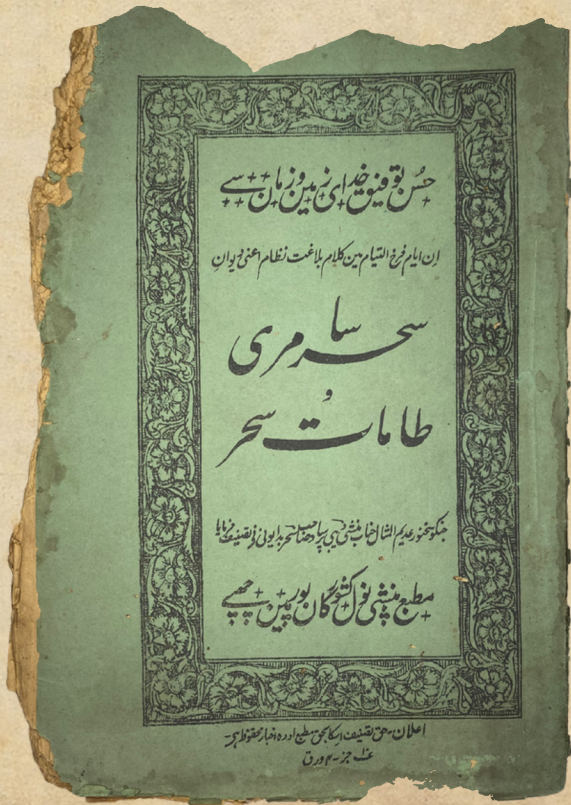 حسن توفیق خدای زمین و زمان سے
ان ایام فرخ التیام مین کلام بلاغت نظام اعنی دیوان
سحر سامری
و
طامات سحر
جنکو سخنور عدیم المثال جناب منشی دیبی پرساد صاحب سحر بدایونی نے تصنیف فرمایا
مطبع منشی نول کشور کان پور مین چھپے
اعلان۔ حق تصنیف اسکا بحق مطبع اودہ اخبار محفوظ ہے۔
جز ۔ ۴ ورق